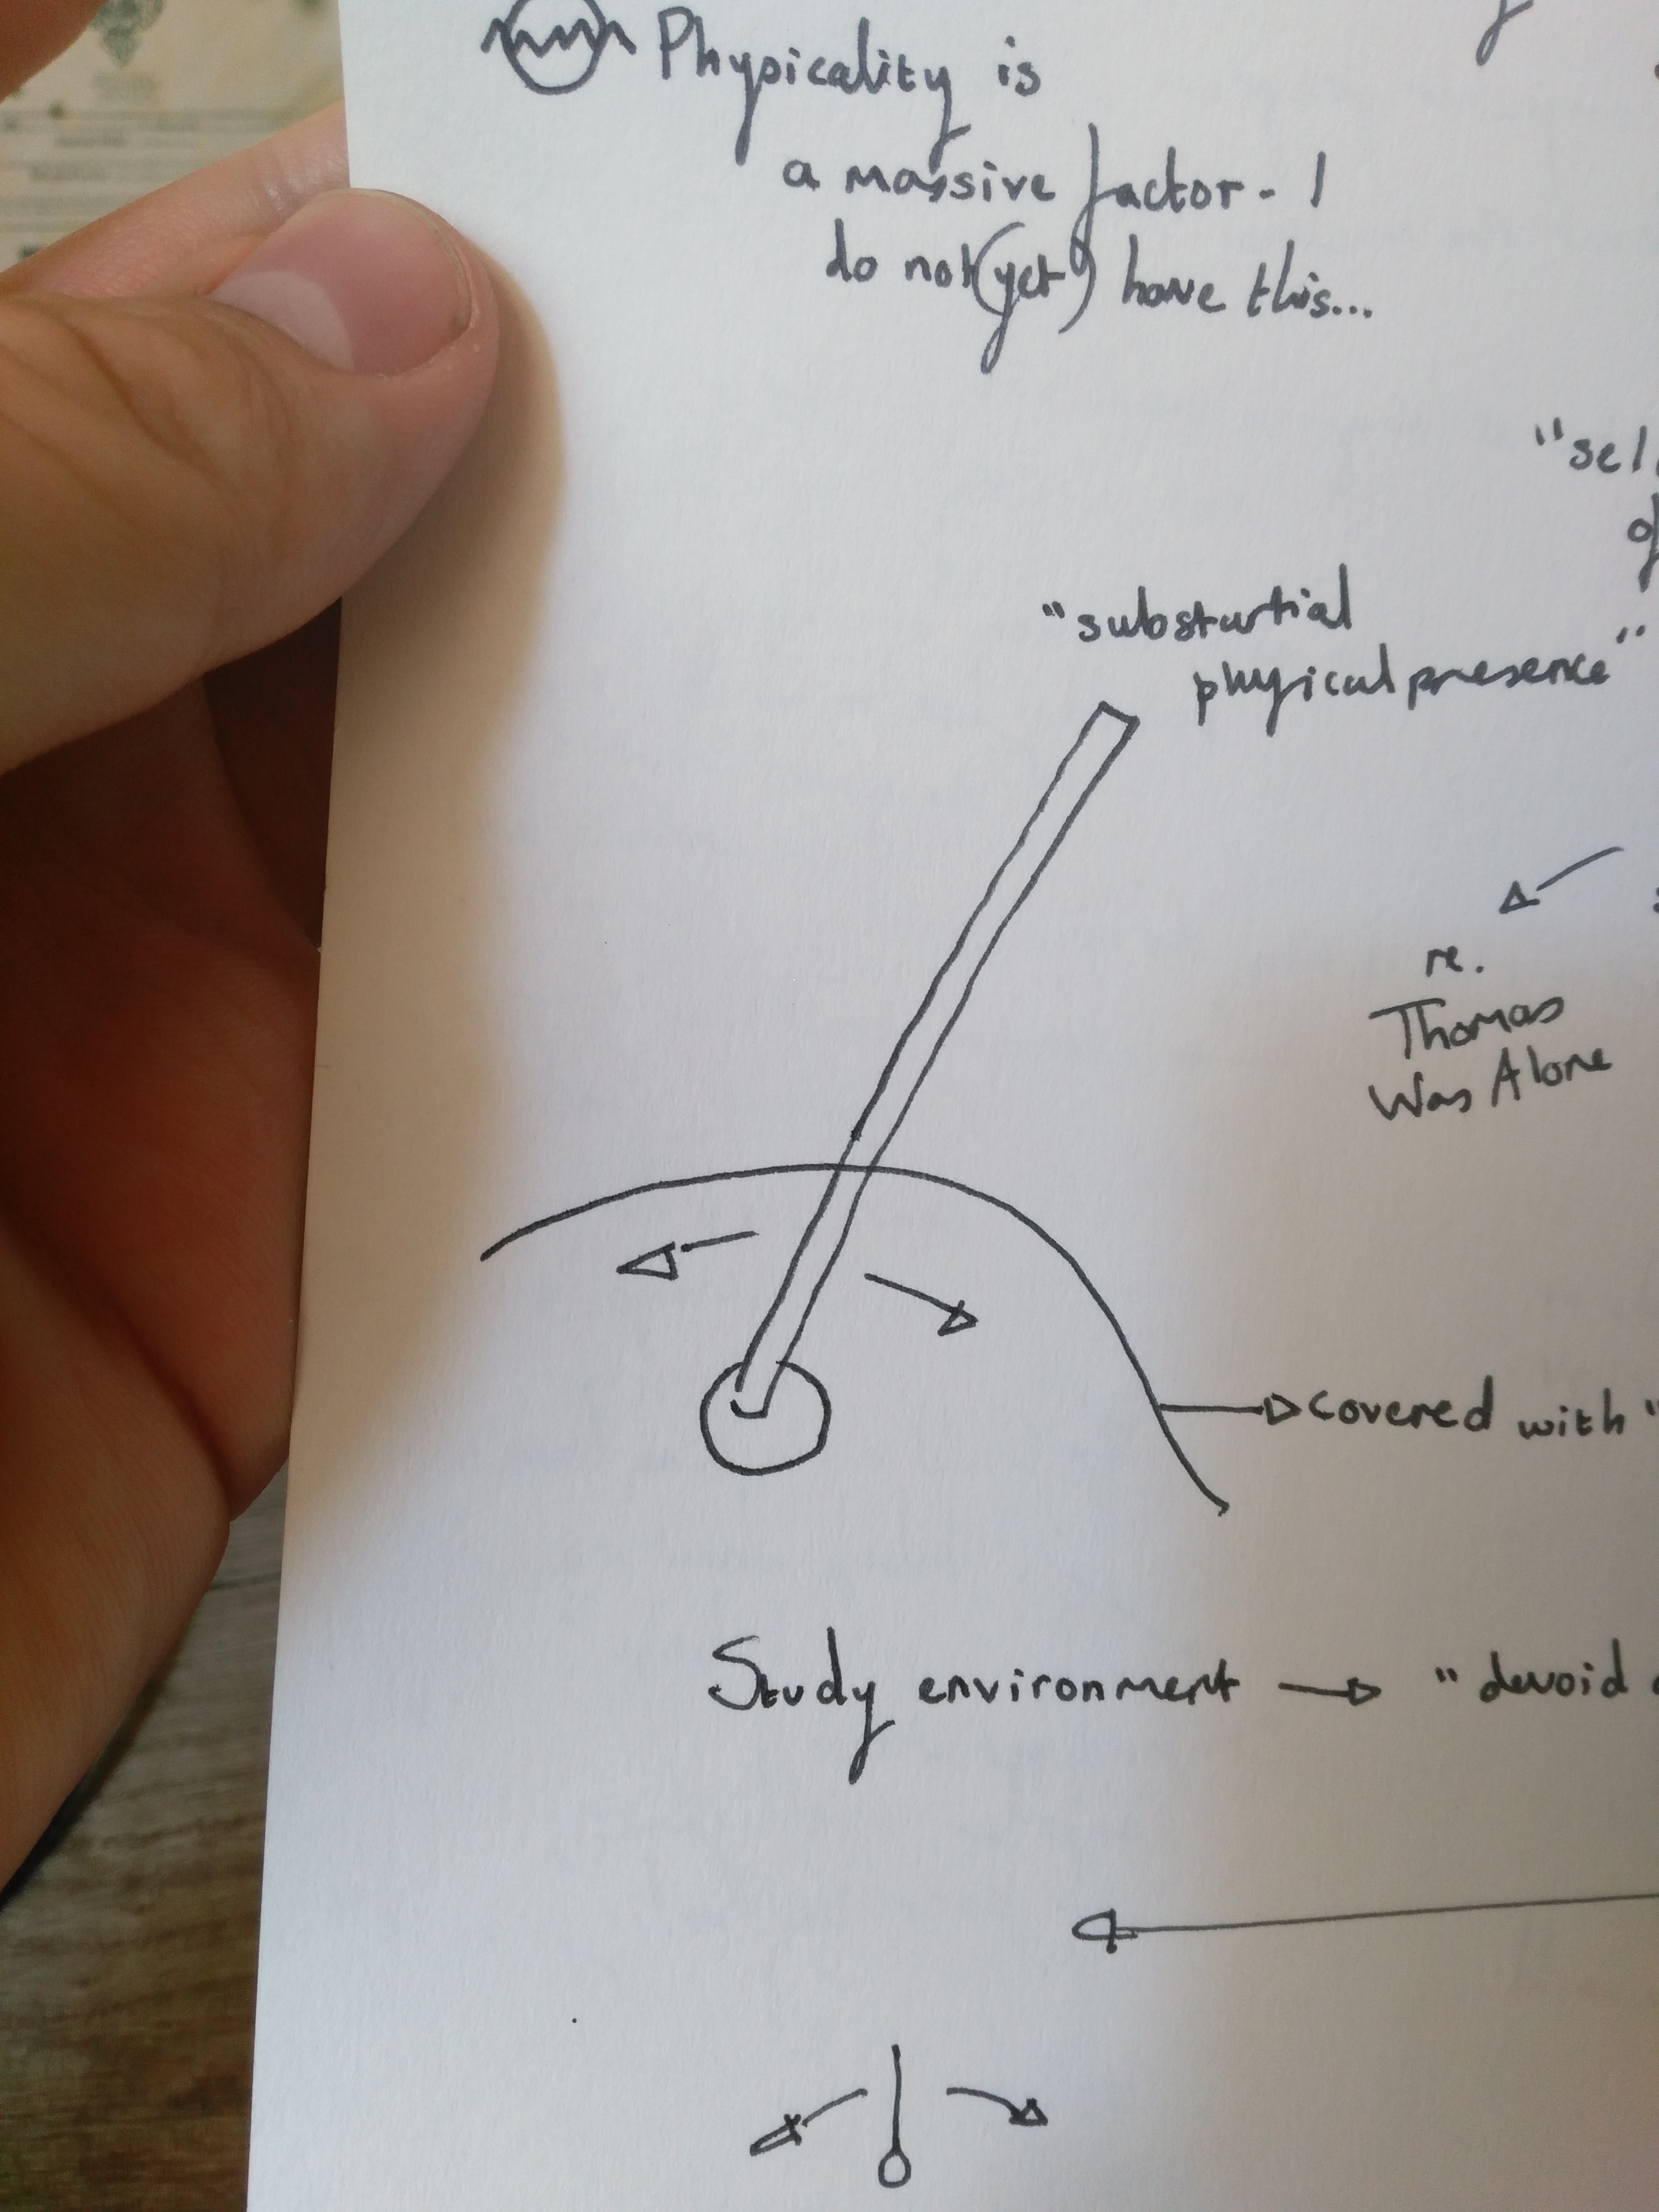 Physicality is
a massive factor - I
do not (yet) have this...
"substantial
physical presence"
re.
Thomas
Was Alone
covered with "
Study environment → "devoid